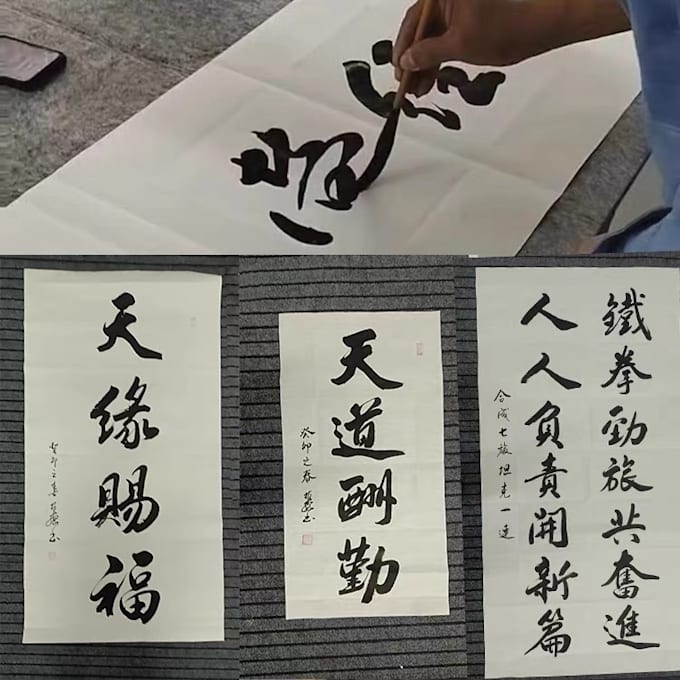 天缘賜福
癸卯之春
天道酬勤
癸卯之春
鐵拳勁旅共奮進
人人負責開新篇
合成七旅坦克一连